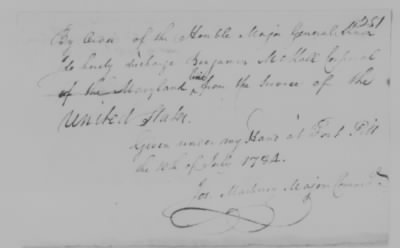 By Order of the Honble Major General
I do hereby discharge Benjamin McHall Corporal
of the Maryland Line from the Service of the
United States.
Given under my Hand at Fort Pitt
the 10th of July 1784.
Jos. Marbury Major Command.t